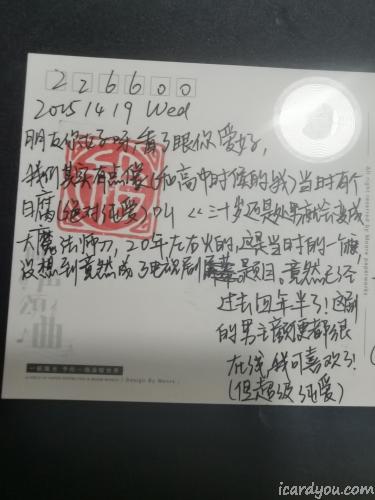 226600
2025 14 19 Wed
朋友你好呀,看了眼你爱好,
我们其实有点像(和高中时候的我)当时有个
日腐(绝对纯爱)叫《三十岁还是处男就会变成
大魔法师》,20年左右火的,这是当时的一个
没想到竟然成了电视剧 题目,竟然已经
过去四年半了!这剧
的男主 都很
在线,我可喜欢了!
(但超级纯爱)
All right reserved by Moore paperworks
Design By Moore
icardyou.com